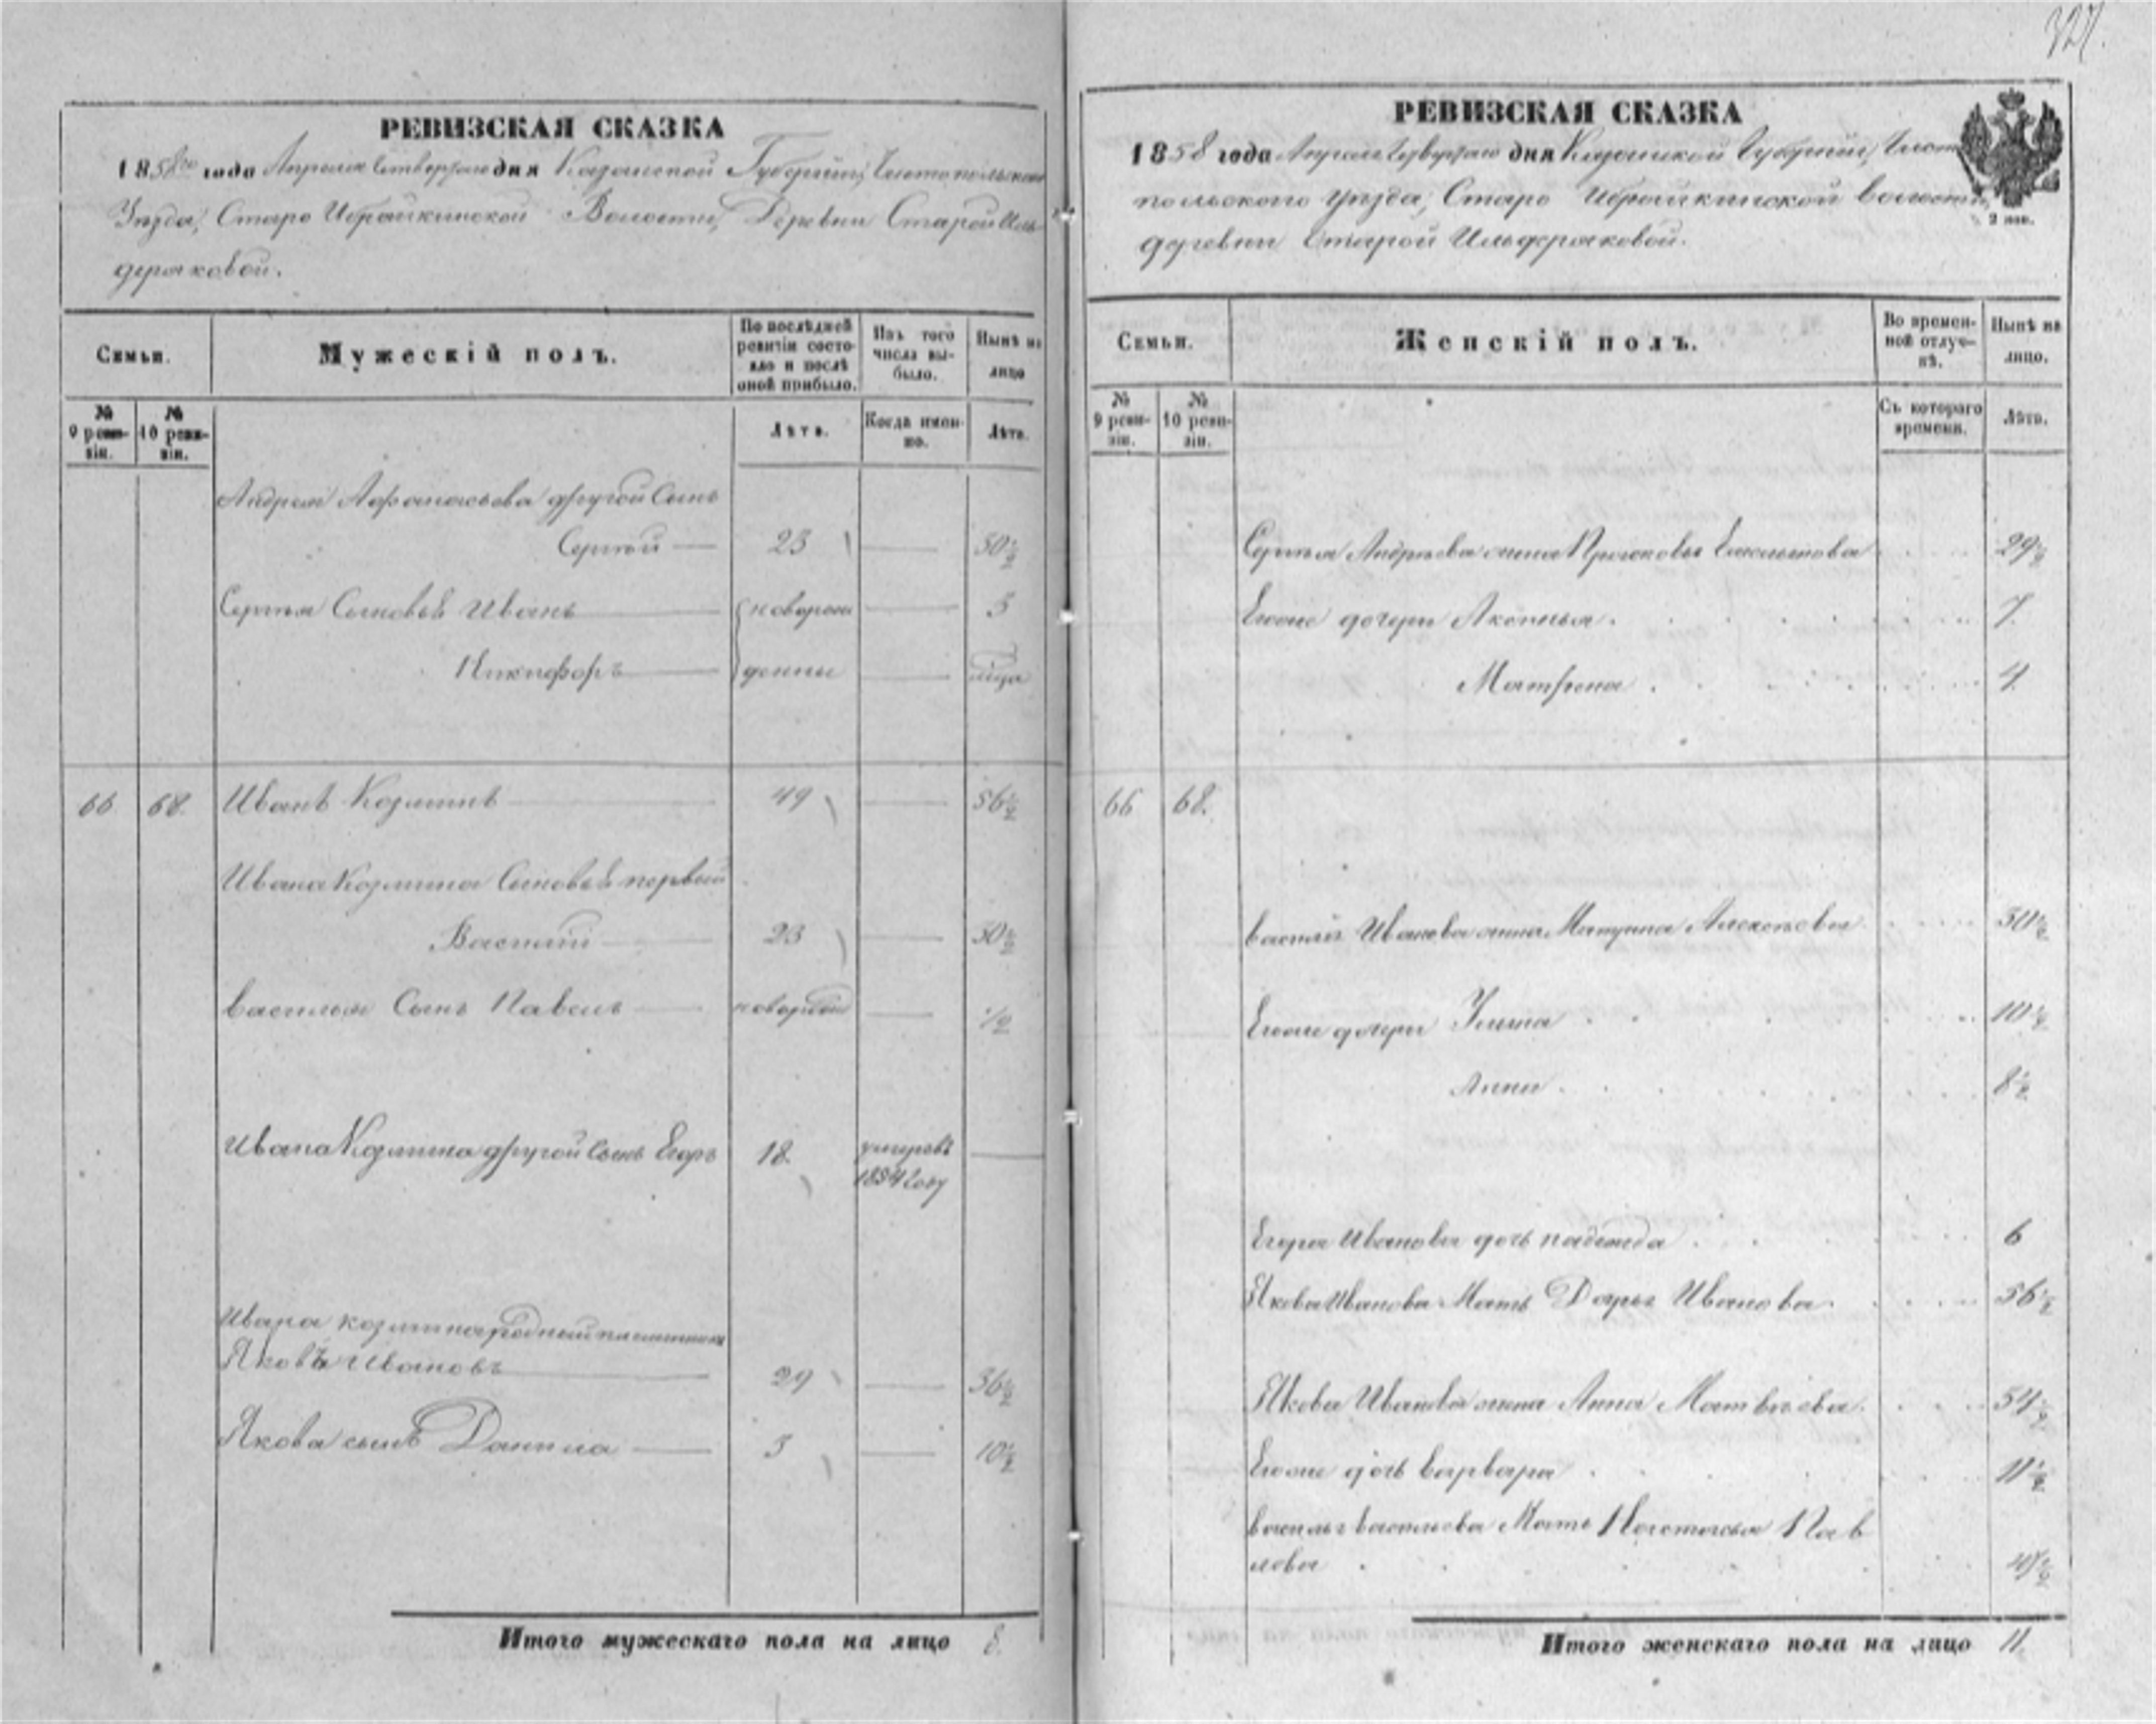 327.
РЕВИЗСКАЯ СКАЗКА
1858го года Апреля Четвертаго дня Казанской Губернии, Чистопольскаго
Уезда, Старо Ибрайкинской Волости, Деревни Старой Иль-
деряковой.
Семьи.
Мужескій полъ.
По послѣдней ревизіи состояло и послѣ оной прибыло.
Изъ того числа выбыло.
Нынѣ на лицо
№ 9 ревизіи.
№ 10 ревизіи.
Лѣта.
Когда именно.
Лѣта.
Андрея Афанасьева другой Сынъ
Сергей 23 30½
Сергея Сыновья Иванъ новорож 3
Никифоръ денны
66 68. Иванъ Козминъ 49 56½
Ивана Козмина Сыновья первый
Василий 23 30½
Василья Сынъ Павелъ ½
Ивана Козмина другой Сынъ Егоръ 18. умеръ въ
1854 году
Ивана Козмина родный племянникъ
Яковъ Ивановъ 29 36½
Якова сынъ Данила 3 10½
Итого мужескаго пола на лицо 8.
РЕВИЗСКАЯ СКАЗКА
2 коп.
1858 года Апреля Четвертаго дня Казанской Губернии, Чисто
польского уезда, Старо Ибрайкинской волости,
деревни Старой Ильдеряковой.
Семьи.
Женскій полъ.
Во временной отлучкѣ.
Нынѣ на лицо.
№ 9 ревизіи.
№ 10 ревизіи.
Съ котораго времени.
Лѣта.
Сергея Андреева жена Прасковья 29½
Ево же дочери Аксинья. 7.
Матрена 4
66 68.
Василья Иванова жена Матрена Алексеева 30½
Ево же дочери 10½
Анна 8½
Егора Иванова дочь надежда 6
Якова Иванова Мать Дарья Иванова. 56½
Якова Иванова жена Анна Матвеева. 34½
Ево же дочь варвара 11½
Василья васильева Мать Настасья Пав
лова 47½
Итого женскаго пола на лицо 11.